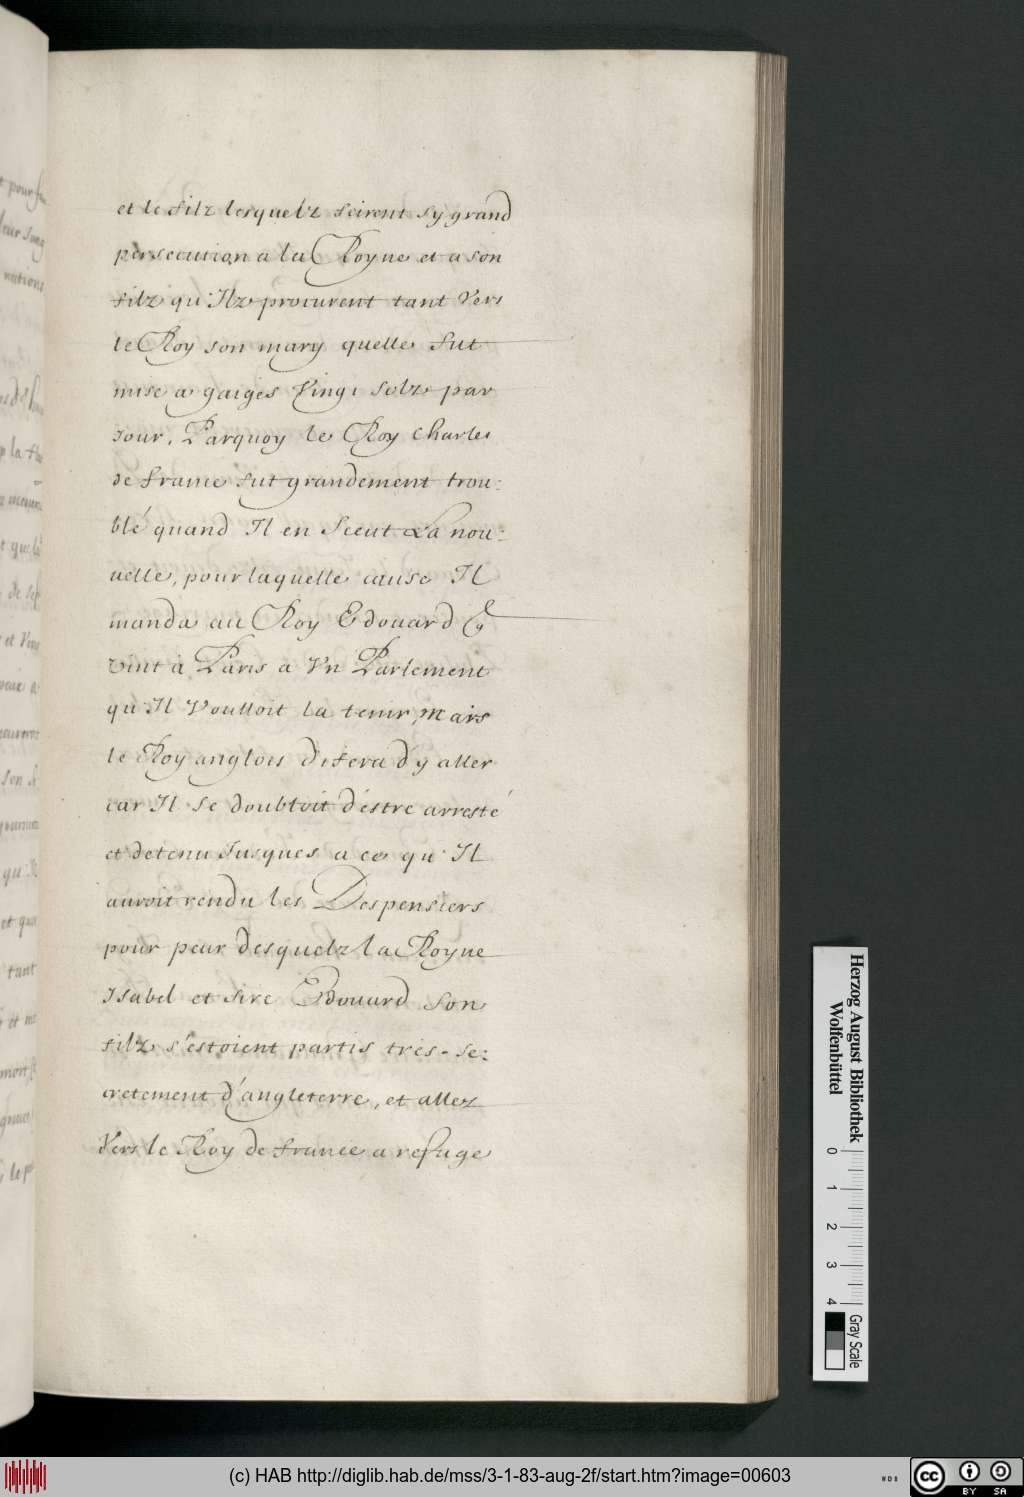 et le filz lesquelz feirent sy grand
persecution a la Royne et a son
filz qu'Ilz procurent tant Vers
le Roy son mary quelle fut
mise a gaiges Vingt solz par
Jour, Parquoy le Roy Charles
de france fut grandement trou:
blé quand Il en Sceut La nou:
uelle, pour laquelle cause Il
manda au Roy Edouard
vint à Paris a Vn Parlement
qu'Il Voulloit la tenir, mais
le Roy anglois difera d'y aller
car Il se doubtoit d'éstre arresté
et detenu Jusques a ce qu'Il
auroit rendu les Despensiers
pour peur desquelz la Royne
Isabel et sire Edouard son
filz s'estoient partis tres-se:
cretement d'angleterre, et allez
Vers le Roy de france a refuge
Herzog August Bibliothek
Wolfenbüttel
0 1 2 3 4
Gray Scale
(c) HAB http://diglib.hab.de/mss/3-1-83-aug-2f/start.htm?image=00603
WDB
cc BY SA